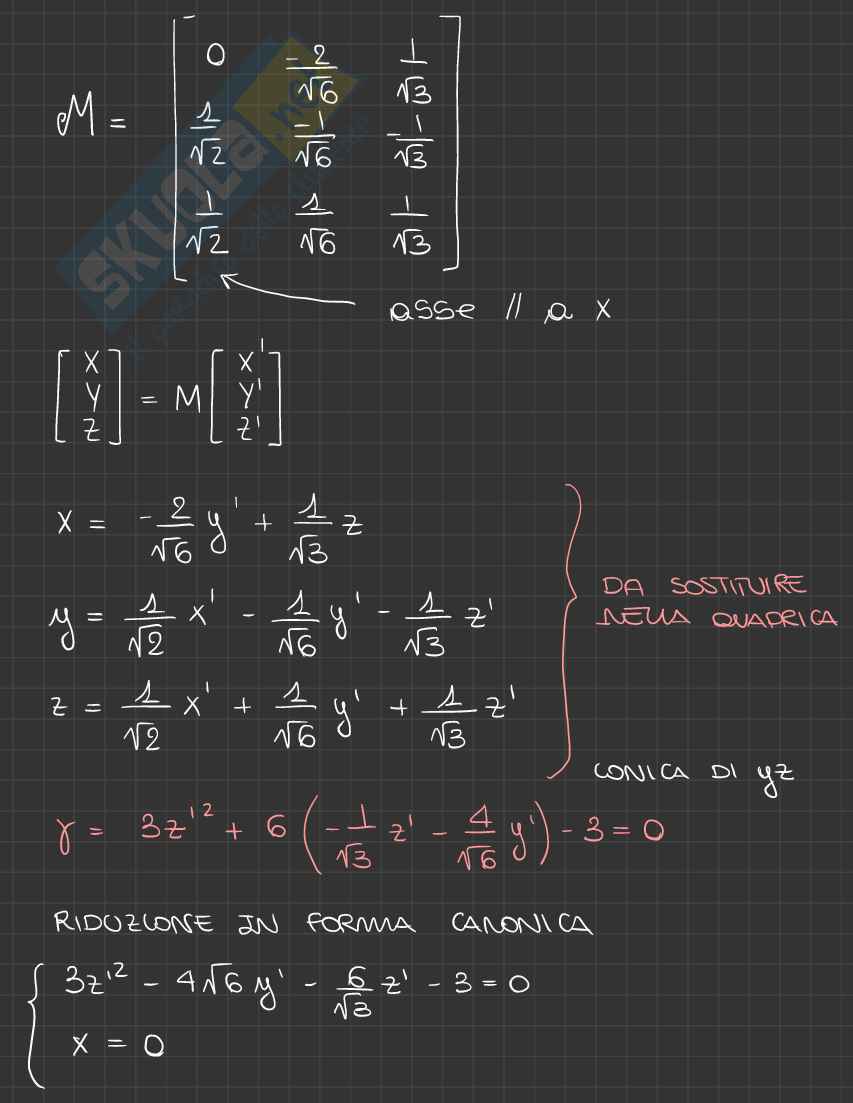 M = [ 0 -2/√6 1/√3
1/√2 -1/√6 -1/√3
1/√2 1/√6 1/√3 ]
asse // a x
[ x y z ] = M [ x' y' z' ]
x = -2/√6 y' + 1/√3 z
y = 1/√2 x' - 1/√6 y' - 1/√3 z'
DA SOSTITUIRE
NELLA QUADRICA
z = 1/√2 x' + 1/√6 y' + 1/√3 z'
CONICA DI yz
γ = 3z'² + 6 ( -1/√3 z' - 4/√6 y' ) - 3 = 0
RIDUZIONE IN FORMA CANONICA
{ 3z'² - 4√6 y' - 6/√3 z' - 3 = 0
x = 0
SKUOLA.net